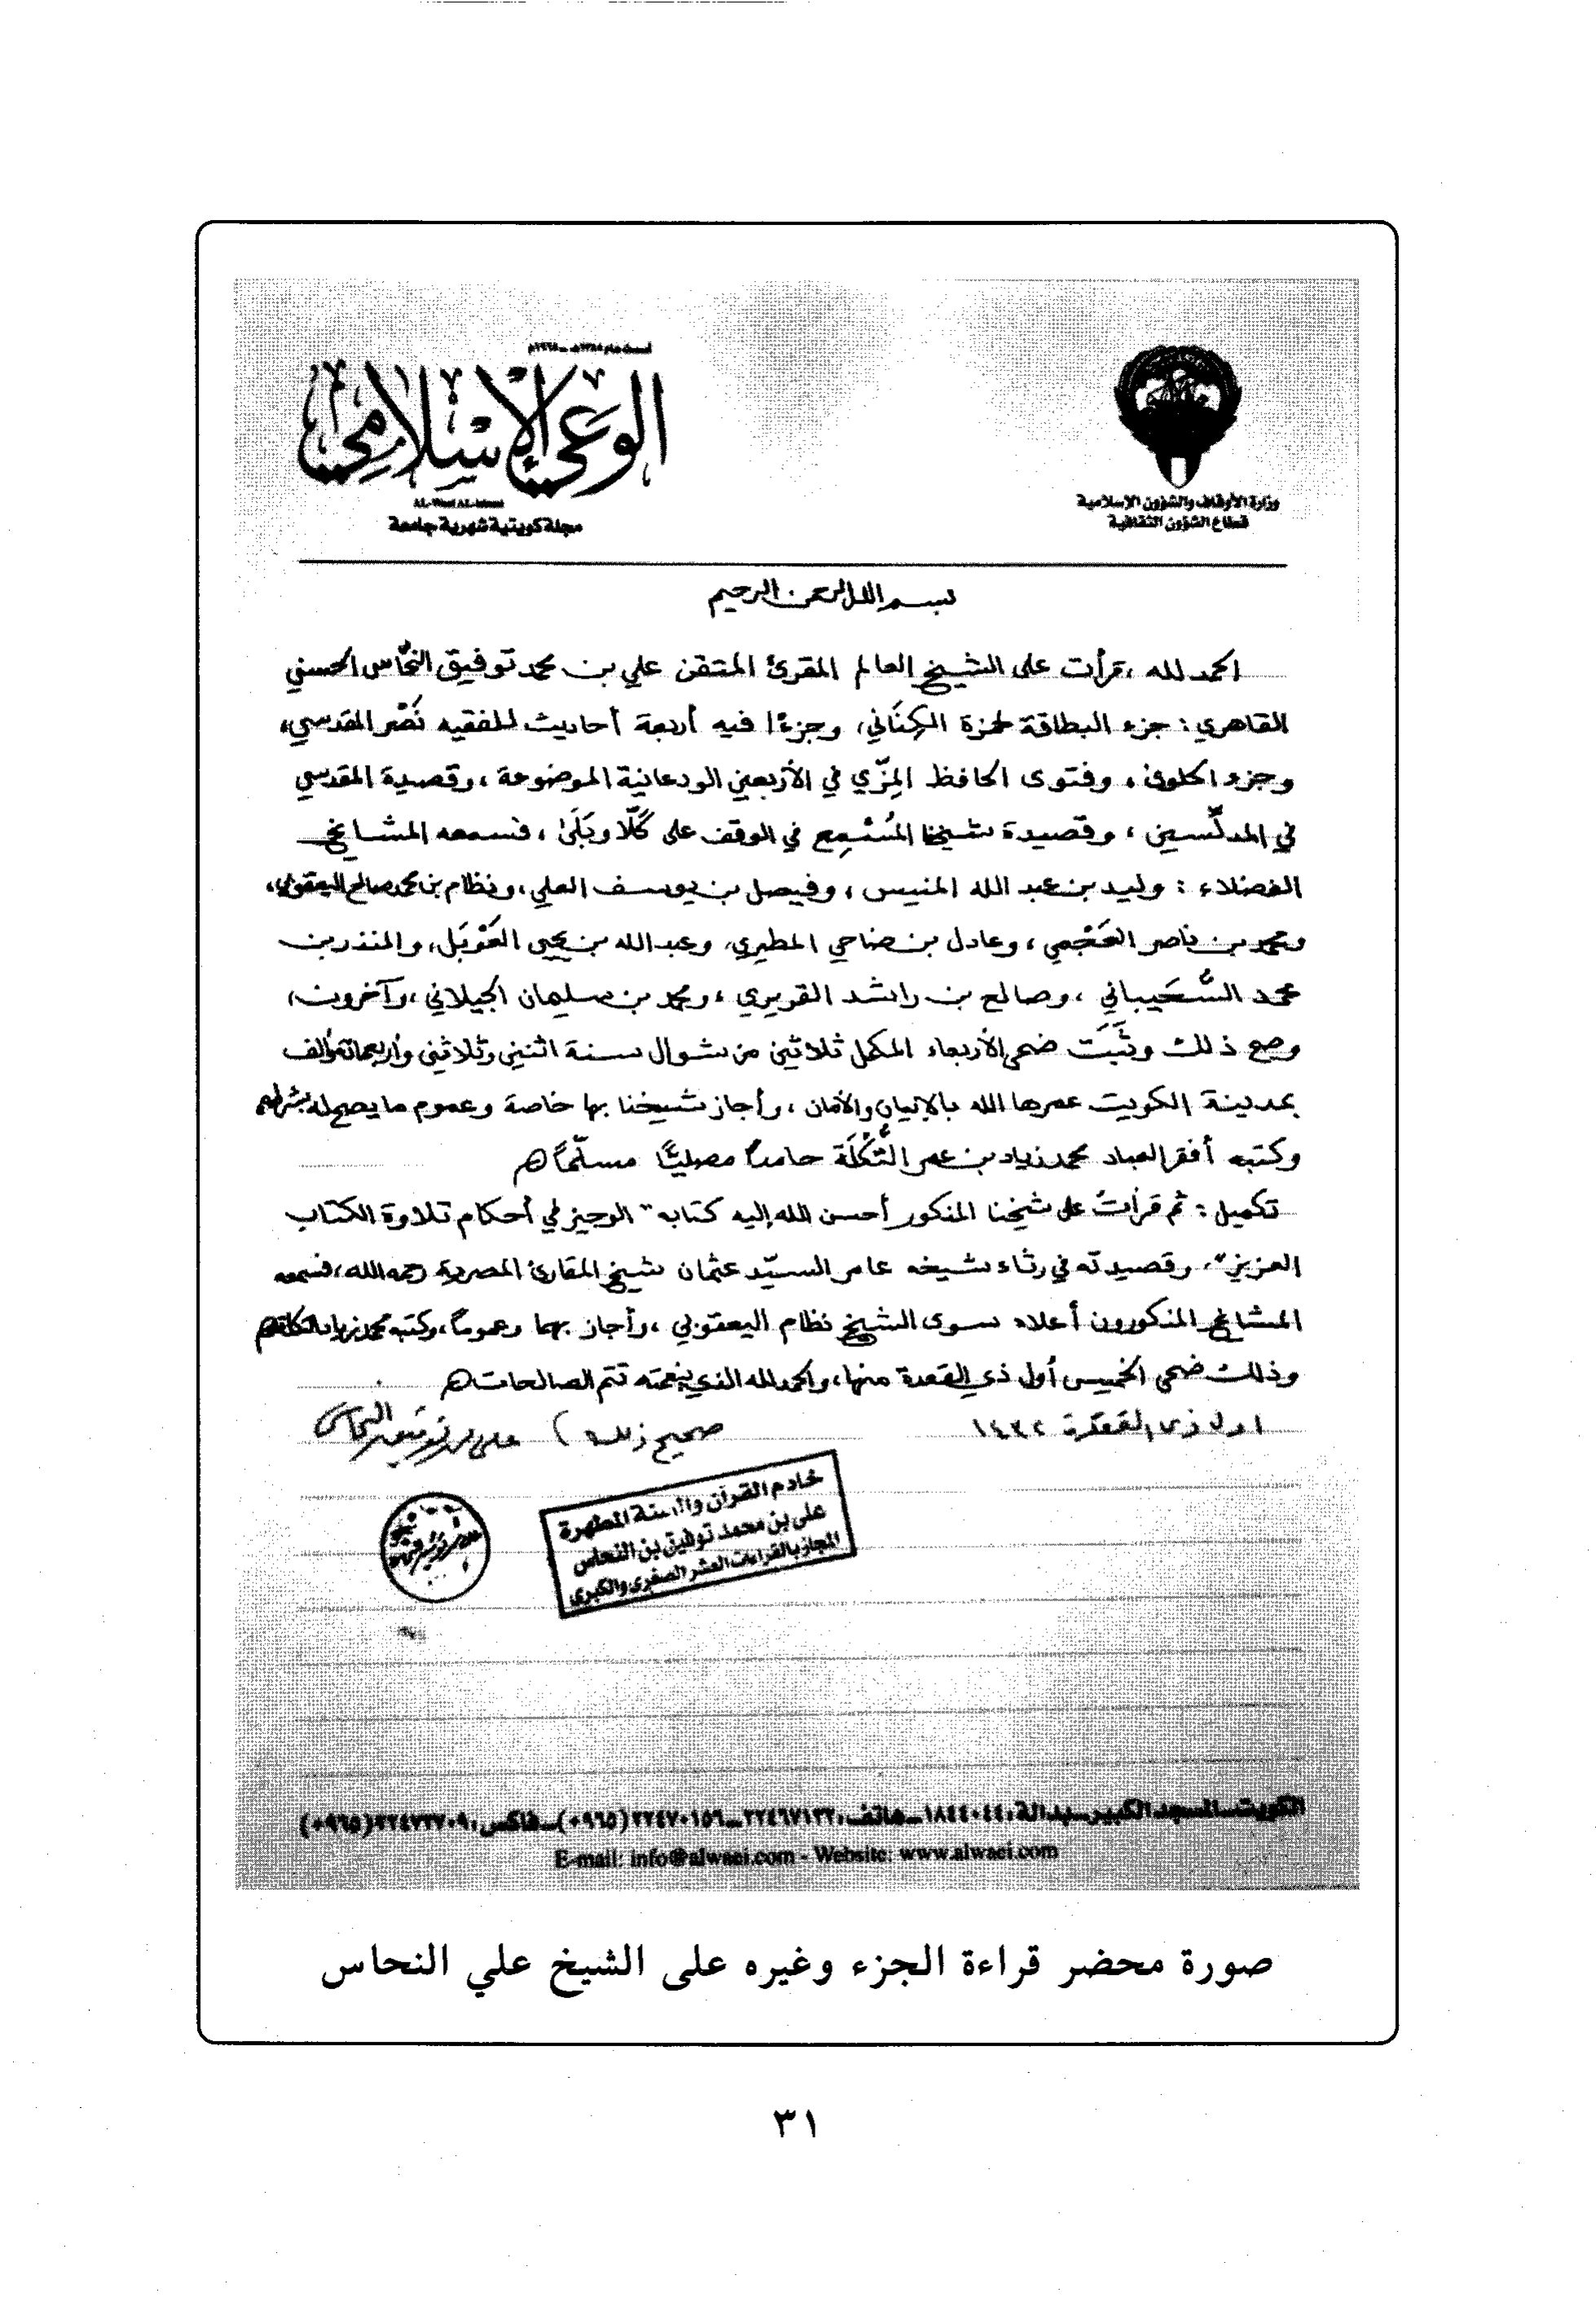 أسست عام ١٣٨٥هـ - ١٩٦٥م
الوعي الإسلامي
AL-Waei AL-Islami
مجلة كويتية شهرية جامعة
وزارة الأوقاف والشؤون الإسلامية
قطاع الشؤون الثقافية
بسم الله الرحمن الرحيم
الحمد لله، قرأت على الشيخ العالم المقرئ المتقن علي بن محمد توفيق النحّاس الحسني
القاهري: جزء البطاقة لحمزة الكِنَاني، وجزءًا فيه أربعة أحاديث للفقيه نَصْر المقدسي،
وجزء الحلوى، وفتوى الحافظ المِزّي في الأربعين الودعانية الموضوعة، وقصيدة المقدسي
في المدلّسين، وقصيدة شيخنا المُسْمِع في الوقف على كَلّا وبَلَىٰ، فسمعه المشايخ
الفضلاء: وليد بن عبد الله المنيس، وفيصل بن يوسف العلي، ونظام بن محمد صالح اليعقوبي،
ومحمد بن ناصر العَجْمي، وعادل بن ضاحي المطيري، وعبد الله بن يحيى العَوْبَل، والمنذر بن
محمد السُّحَيباني، وصالح بن راشد القريري، ومحمد بن سليمان الجيلاني، وآخرون،
وصح ذلك وثَبَتَ ضحى الأربعاء المكمل ثلاثين من شوال سنة اثنين وثلاثين وأربعمائة وألف
بمدينة الكويت عمرها الله بالإيمان والأمان، وأجاز شيخنا بها خاصة وعموم ما يصح له بشرطه
وكتبه أفقر العباد محمد زياد بن عمر التُّكْلَة حامدًا مصليًا مسلّمًا هـ
تكميل: ثم قرأتُ على شيخنا المذكور أحسن الله إليه كتابه "الوجيز في أحكام تلاوة الكتاب
العزيز"، وقصيدته في رثاء شيخه عامر السيّد عثمان شيخ المقارئ المصرية رحمه الله، فسمعه
المشايخ المذكورون أعلاه سوى الشيخ نظام اليعقوبي، وأجاز بهما وعمومًا، وكتبه محمد زياد التكلة هـ
وذلك ضحى الخميس أول ذي القعدة منها، والحمد لله الذي بنعمته تتم الصالحات هـ
اول ذى القعدة ١٤٣٢
صحيح ذلك) على بن توفيق النحاس
خادم القرآن والسنة المطهرة
على بن محمد توفيق بن النحاس
المجاز بالقراءات العشر الصغرى والكبرى
الكويت - المسجد الكبير - بدالة: ١٨٤٤٠٤٤ - هاتف: ٢٢٤٦٧١٣٢ - ٢٢٤٧٠١٥٦ (٠٩٦٥) - فاكس: ٢٢٤٧٣٧٠٩ (٠٩٦٥)
E-mail: info@alwaei.com - Website: www.alwaei.com
صورة محضر قراءة الجزء وغيره على الشيخ علي النحاس
٣١